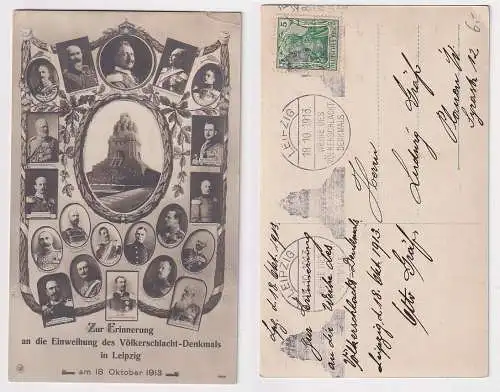 Zur Erinnerung
an die Einweihung des Völkerschlacht-Denkmals
in Leipzig
am 18 Oktober 1913
6,-
5
LEIPZIG
18.10.1913.
WEIHE DES
VÖLKERSCHLACHT
DENKMALS
LEIPZIG
Herrn
Ludwig Gräf
Plauen i/V.
12
Lpz. d. 18 Okt. 1913.
Zur Erinnerung
an die Weihe des
Völkerschlacht-Denkmals
Leipzig d. 18 Okt. 1913.
Otto Gräf